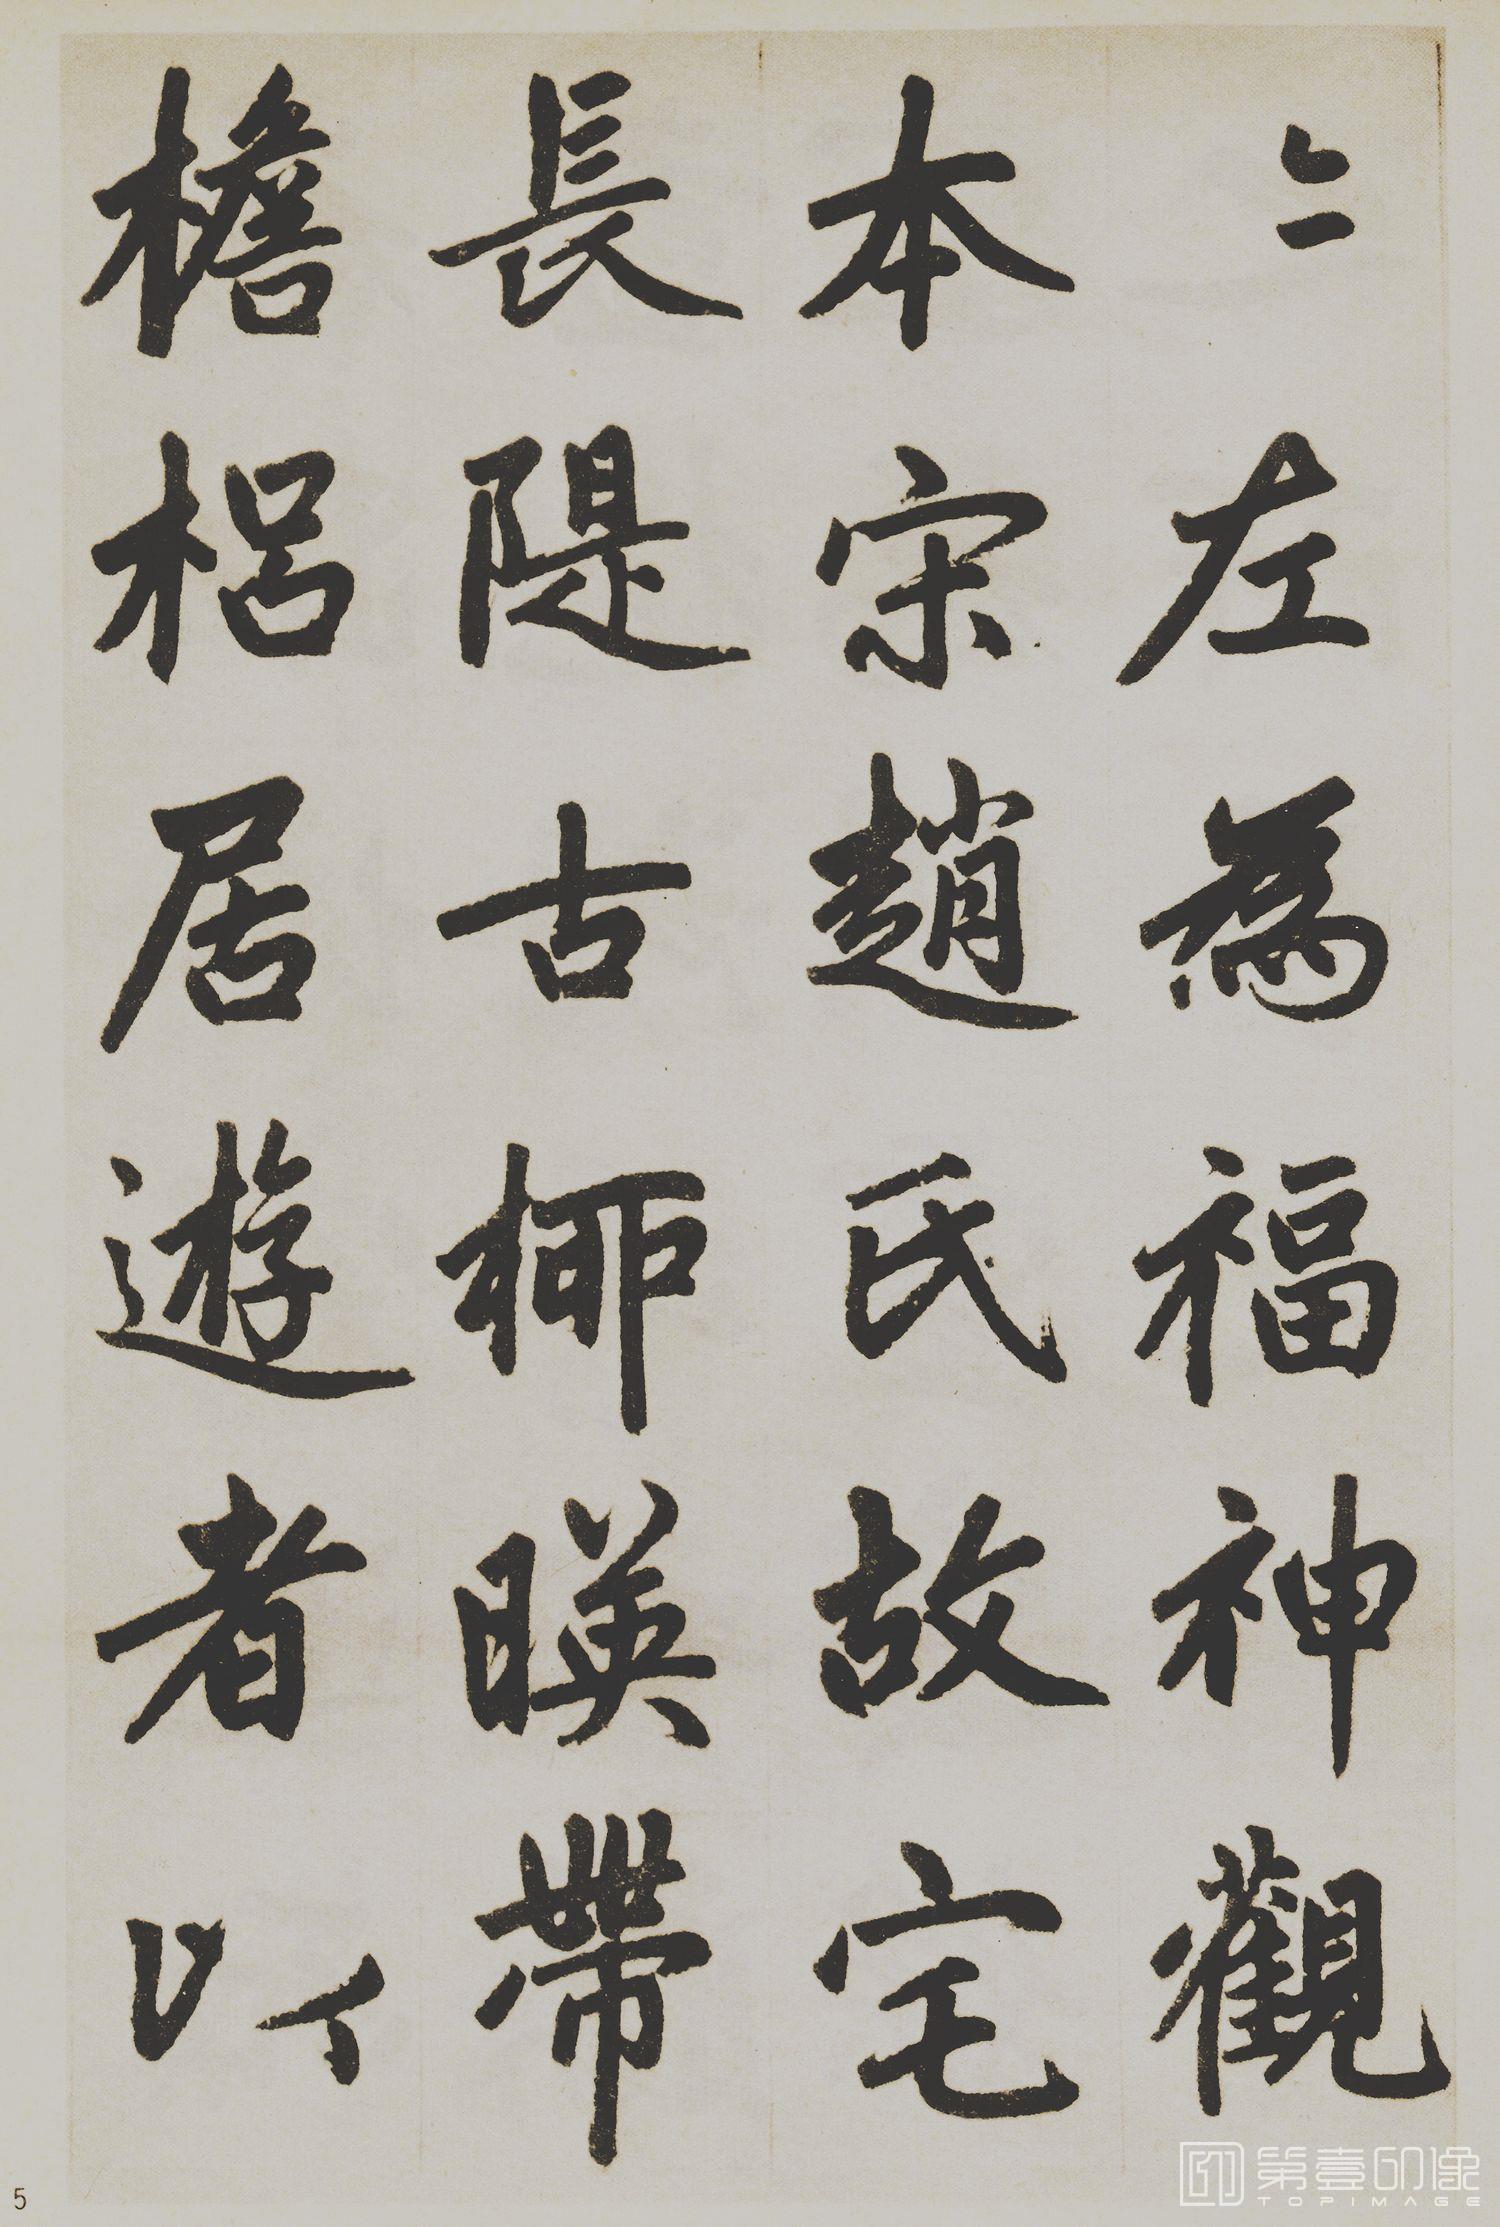 〻左為福神觀
本宋趙氏故宅
長隄古柳暎帶
檐梠居遊者以
5
第壹印像
TOPIMAGE